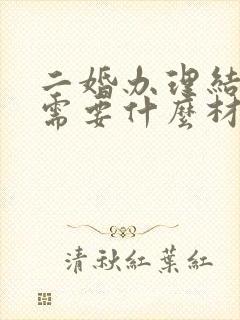 二婚办理結
需要什麼材
清秋紅葉紅